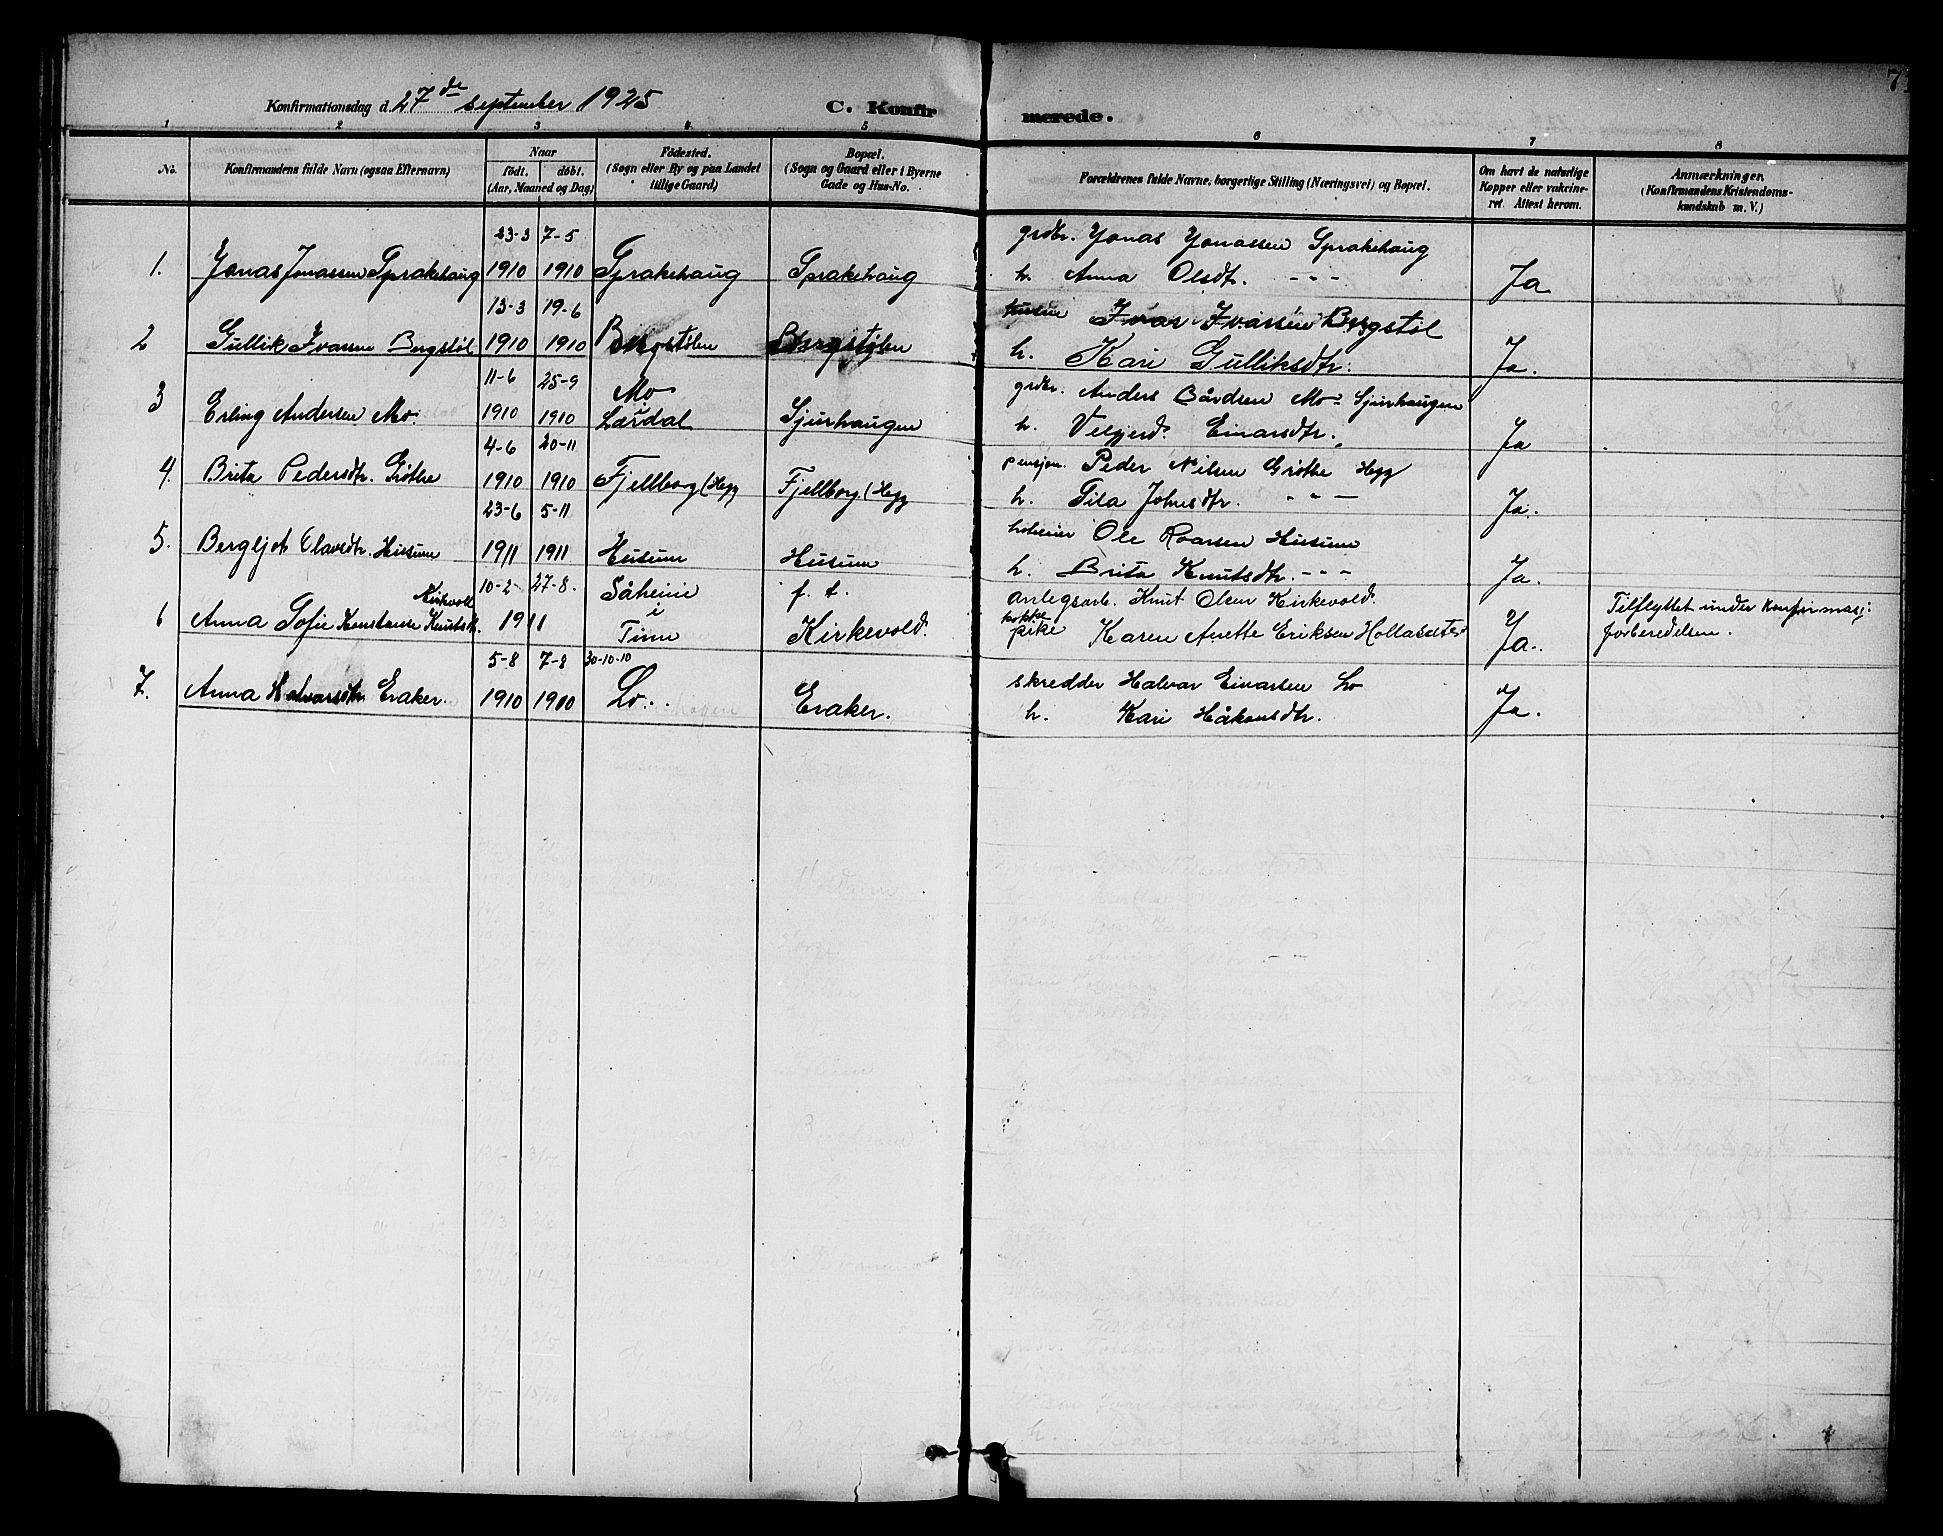 7
Konfirmationsdag d. 27de september 1925
C. Konfirmerede.
1 2 3 4 5 6 7 8
No. Konfirmandens fulde Navn (ogsaa Efternavn) Naar født. døbt. (Aar, Maaned og Dag) Födested. (Sogn eller By og paa Landet tillige Gaard) Bopæl. (Sogn og Gaard eller i Byerne Gade og Hus-No. Forældrenes fulde Navne, borgerlige Stilling (Næringsvei) og Bopæl. Om havt de naturlige Kopper eller vakcineret. Attest herom. Anmærkninger. (Konfirmandens Kristendomskundskab m. V.)
23-3 7-5 grdbr. Jonas Jonassen Sprakehaug
1. Jonas Jonassen Sprakehaug 1910 1910 Sprakehaug Sprakehaug h. Anna Olsdt. - - - Ja
13-3 19-6 Ivar Ivarsen Bergstöl
2 Gullik Ivarsen Bergstöl 1910 1910 Bergstölen Bergstölen h. Kari Gulliksdtr. Ja.
11-6 25-9 Mo grdbr. Anders Bårdsen Mo - Sjurhaugen
3 Erling Andersen Mo. 1910 1910 Lärdal Sjurhaugen h. Einarsdtr. Ja
4-6 20-11 pensjon. Peder Nilsen Gröthe Hegg
4. Brita Pedersdtr. Gröthe 1910 1910 Fjellborg (Hegg Fjellborg (Hegg h. Johnsdtr. - - - Ja.
23-6 5-11 Ole Husum
5. Bergljot Olavsdtr. Husum 1911 1911 Husum Husum h. Brita Knutsdtr. - - - Ja.
Kirkvoll 10-2 27-8. Såheim f. t. anlegsarb. Knut Olsen Kirkevold. Tilflyttet under konfirmasj.
6 Anna Sofie Konstanse Knutsdt. 1911 i Tinn Kirkevold. kokkepike Karen Anette Eriksen Ja.. forberedelsen.
5-8 7-8 30-10-10 skredder Halvar Einarsen Lo
7. Anna Halvarsdtr Eraker. 1910 1910 Lo. Eraker. h. Kari Håkonsdtr. Ja.